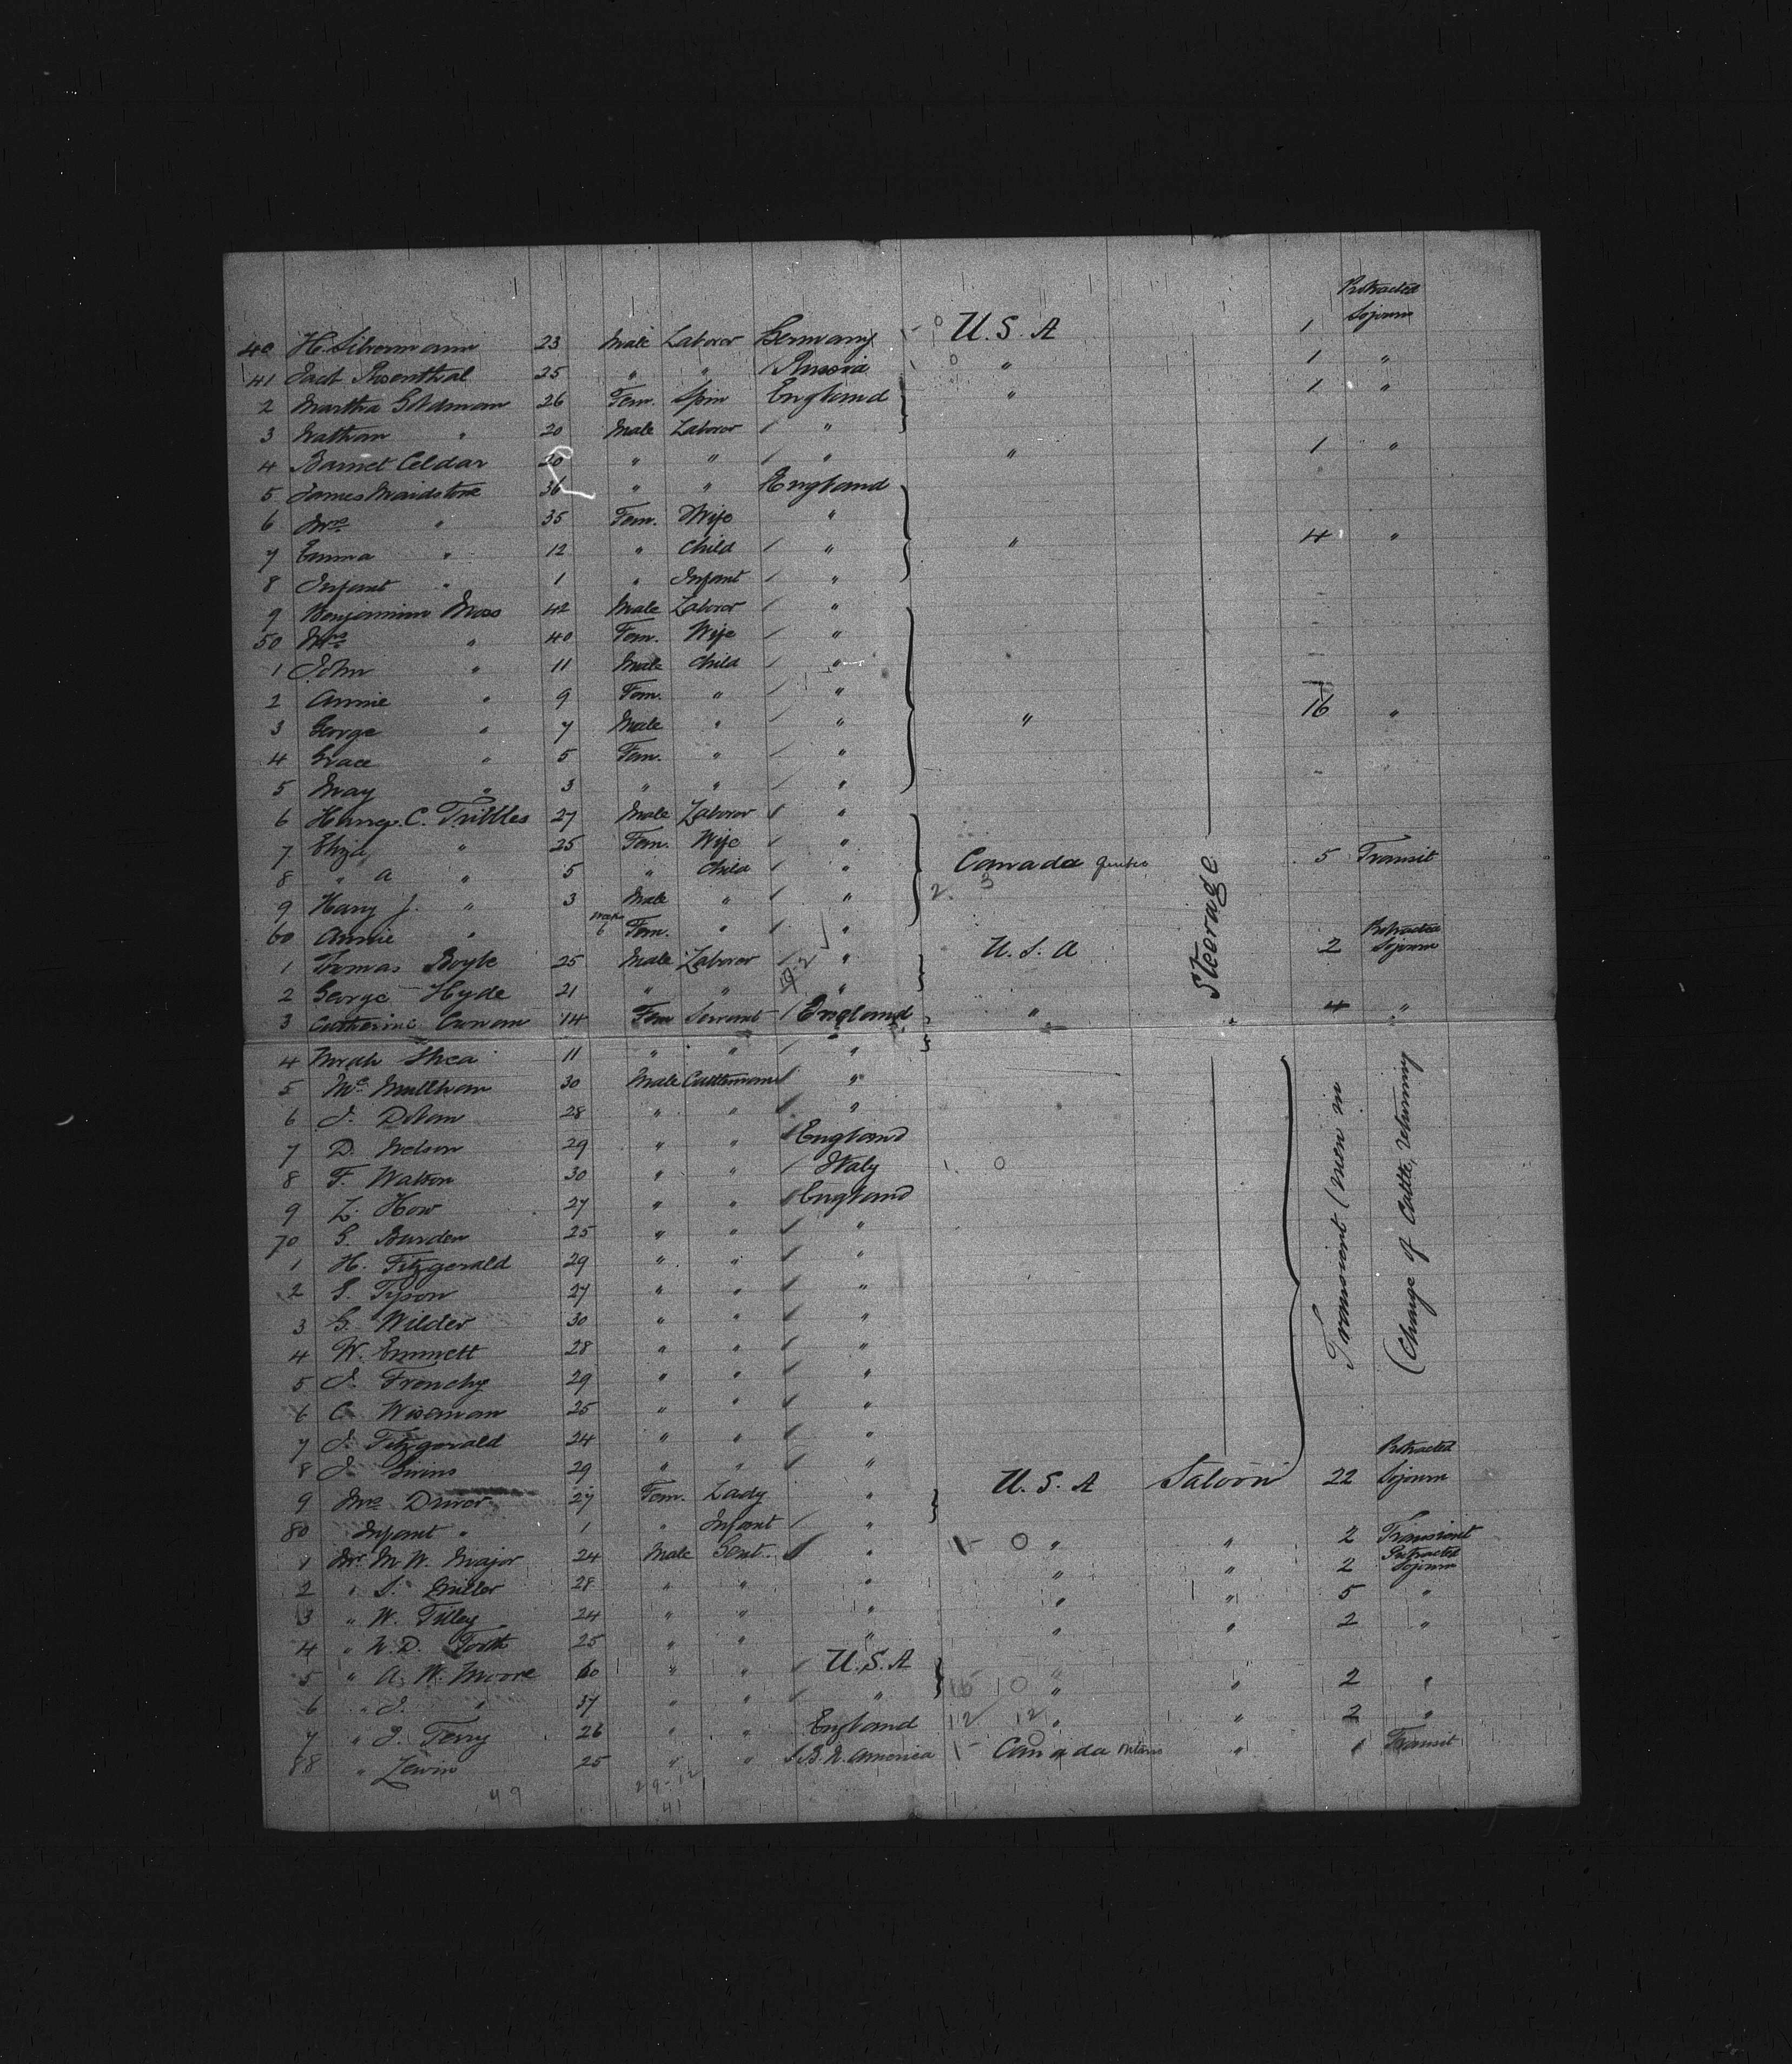 Protracted
40 H. Silvermann 23 Male Laborer Germany U.S.A 1 Sojourn
41 Jacb Rosenthal 25 " " Russia " 1 "
2 Martha Goldman 26 Fem. Spin England " 1 "
3 Nathan " 20 Male Laborer "
4 Barnet Celdar 20 " " " " 1 "
5 James Maidstone 36 " " England
6 Mrs " 35 Fem. Wife "
7 Emma " 12 " Child " " 4 "
8 Infant " 1 " Infant "
9 Benjamin Moss 42 Male Laborer "
50 Mrs " 40 Fem. Wife "
1 John " 11 Male Child "
2 Annie " 9 Fem. " " 
3 George " 7 Male " " " 16 "
4 Grace " 5 Fem. " "
5 May " 3 " " "
6 Harry C. Tribbles 27 Male Laborer "
7 Eliza " 25 Fem. Wife "
8 " A " 5 " Child " Canada Quebec 5 Transit
9 Harry J. " 3 Male " " 2 5
60 Annie " 6 Fem. " " Protracted
1 Thomas Boyle 25 Male Laborer " U.S.A 2 Sojourn
2 George Hyde 21 " " "
3 Catherine Curran 14 Fem Servant England " Steerage 4 "
4 Norah Shea 11 " " "
5 Mc Mullham 30 Male Cattleman "
6 J. Dolan 28 " " "
7 D. Nelson 29 " " England
8 F. Watson 30 " " Italy 0
9 L. How 27 " " England
70 G. Burden 25 " " "
1 H. Fitzgerald 29 " " "
2 S. Tyson 27 " " "
3 G. Wilder 30 " " "
4 W. Emmett 28 " " "
5 J. Frenchy 29 " " "
6 C. Wiseman 25 " " "
7 J. Fitzgerald 24 " " "
8 J. 29 " " "
Transient (men in
(Charge of Cattle, returning
Protracted
9 Mrs Driver 27 Fem. Lady " U.S.A Saloon 22 Sojourn
80 Infant " 1 " Infant "
1 Mr M W. Major 24 Male Gent. " 0 " " 2 Transient
2 " S. Miller 28 " " " " " 2 Protracted Sojourn
3 " W. Tilley 24 " " " " " 5 "
4 " N. D. Forth 25 " " " " " 2 "
5 " A. W. Moore 60 " " U.S.A
6 " J. " 37 " " " 10 " " 2 "
7 " J. Terry 26 " " England 12 12 " " 2 "
88 " Lewin 25 " " B. N. America Canada Ontario " Transit
49 29-12
41